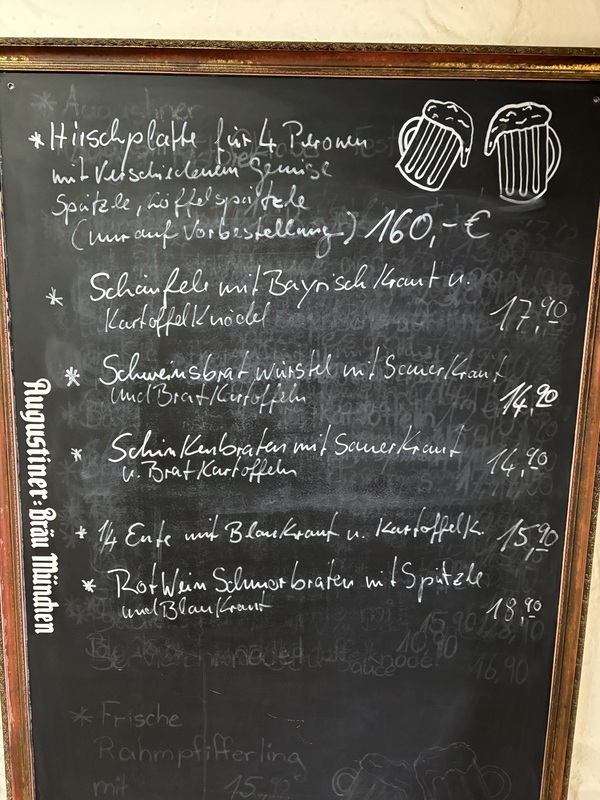 *Hirschplatte für 4 Personen
mit Verschiedenem Gemüse
Spätzle, Löffelspätzle
(nur auf Vorbestellung) 160,-€
* Schäufele mit Bayrisch Kraut u.
Kartoffelknödel 17,90
* Schweinsbratwürstel mit Sauerkraut
und Bratkartoffeln 14,90
* Schinkenbraten mit Sauerkraut
u. Bratkartoffeln 14,90
* 1/4 Ente mit Blaukraut u. Kartoffelk. 15,90
* Rotwein Schmorbraten mit Spätzle
und Blaukraut 18,90
15,90
10,90
16,90
* Frische
Rahmpfifferling
mit 15,90
Augustiner=Bräu München